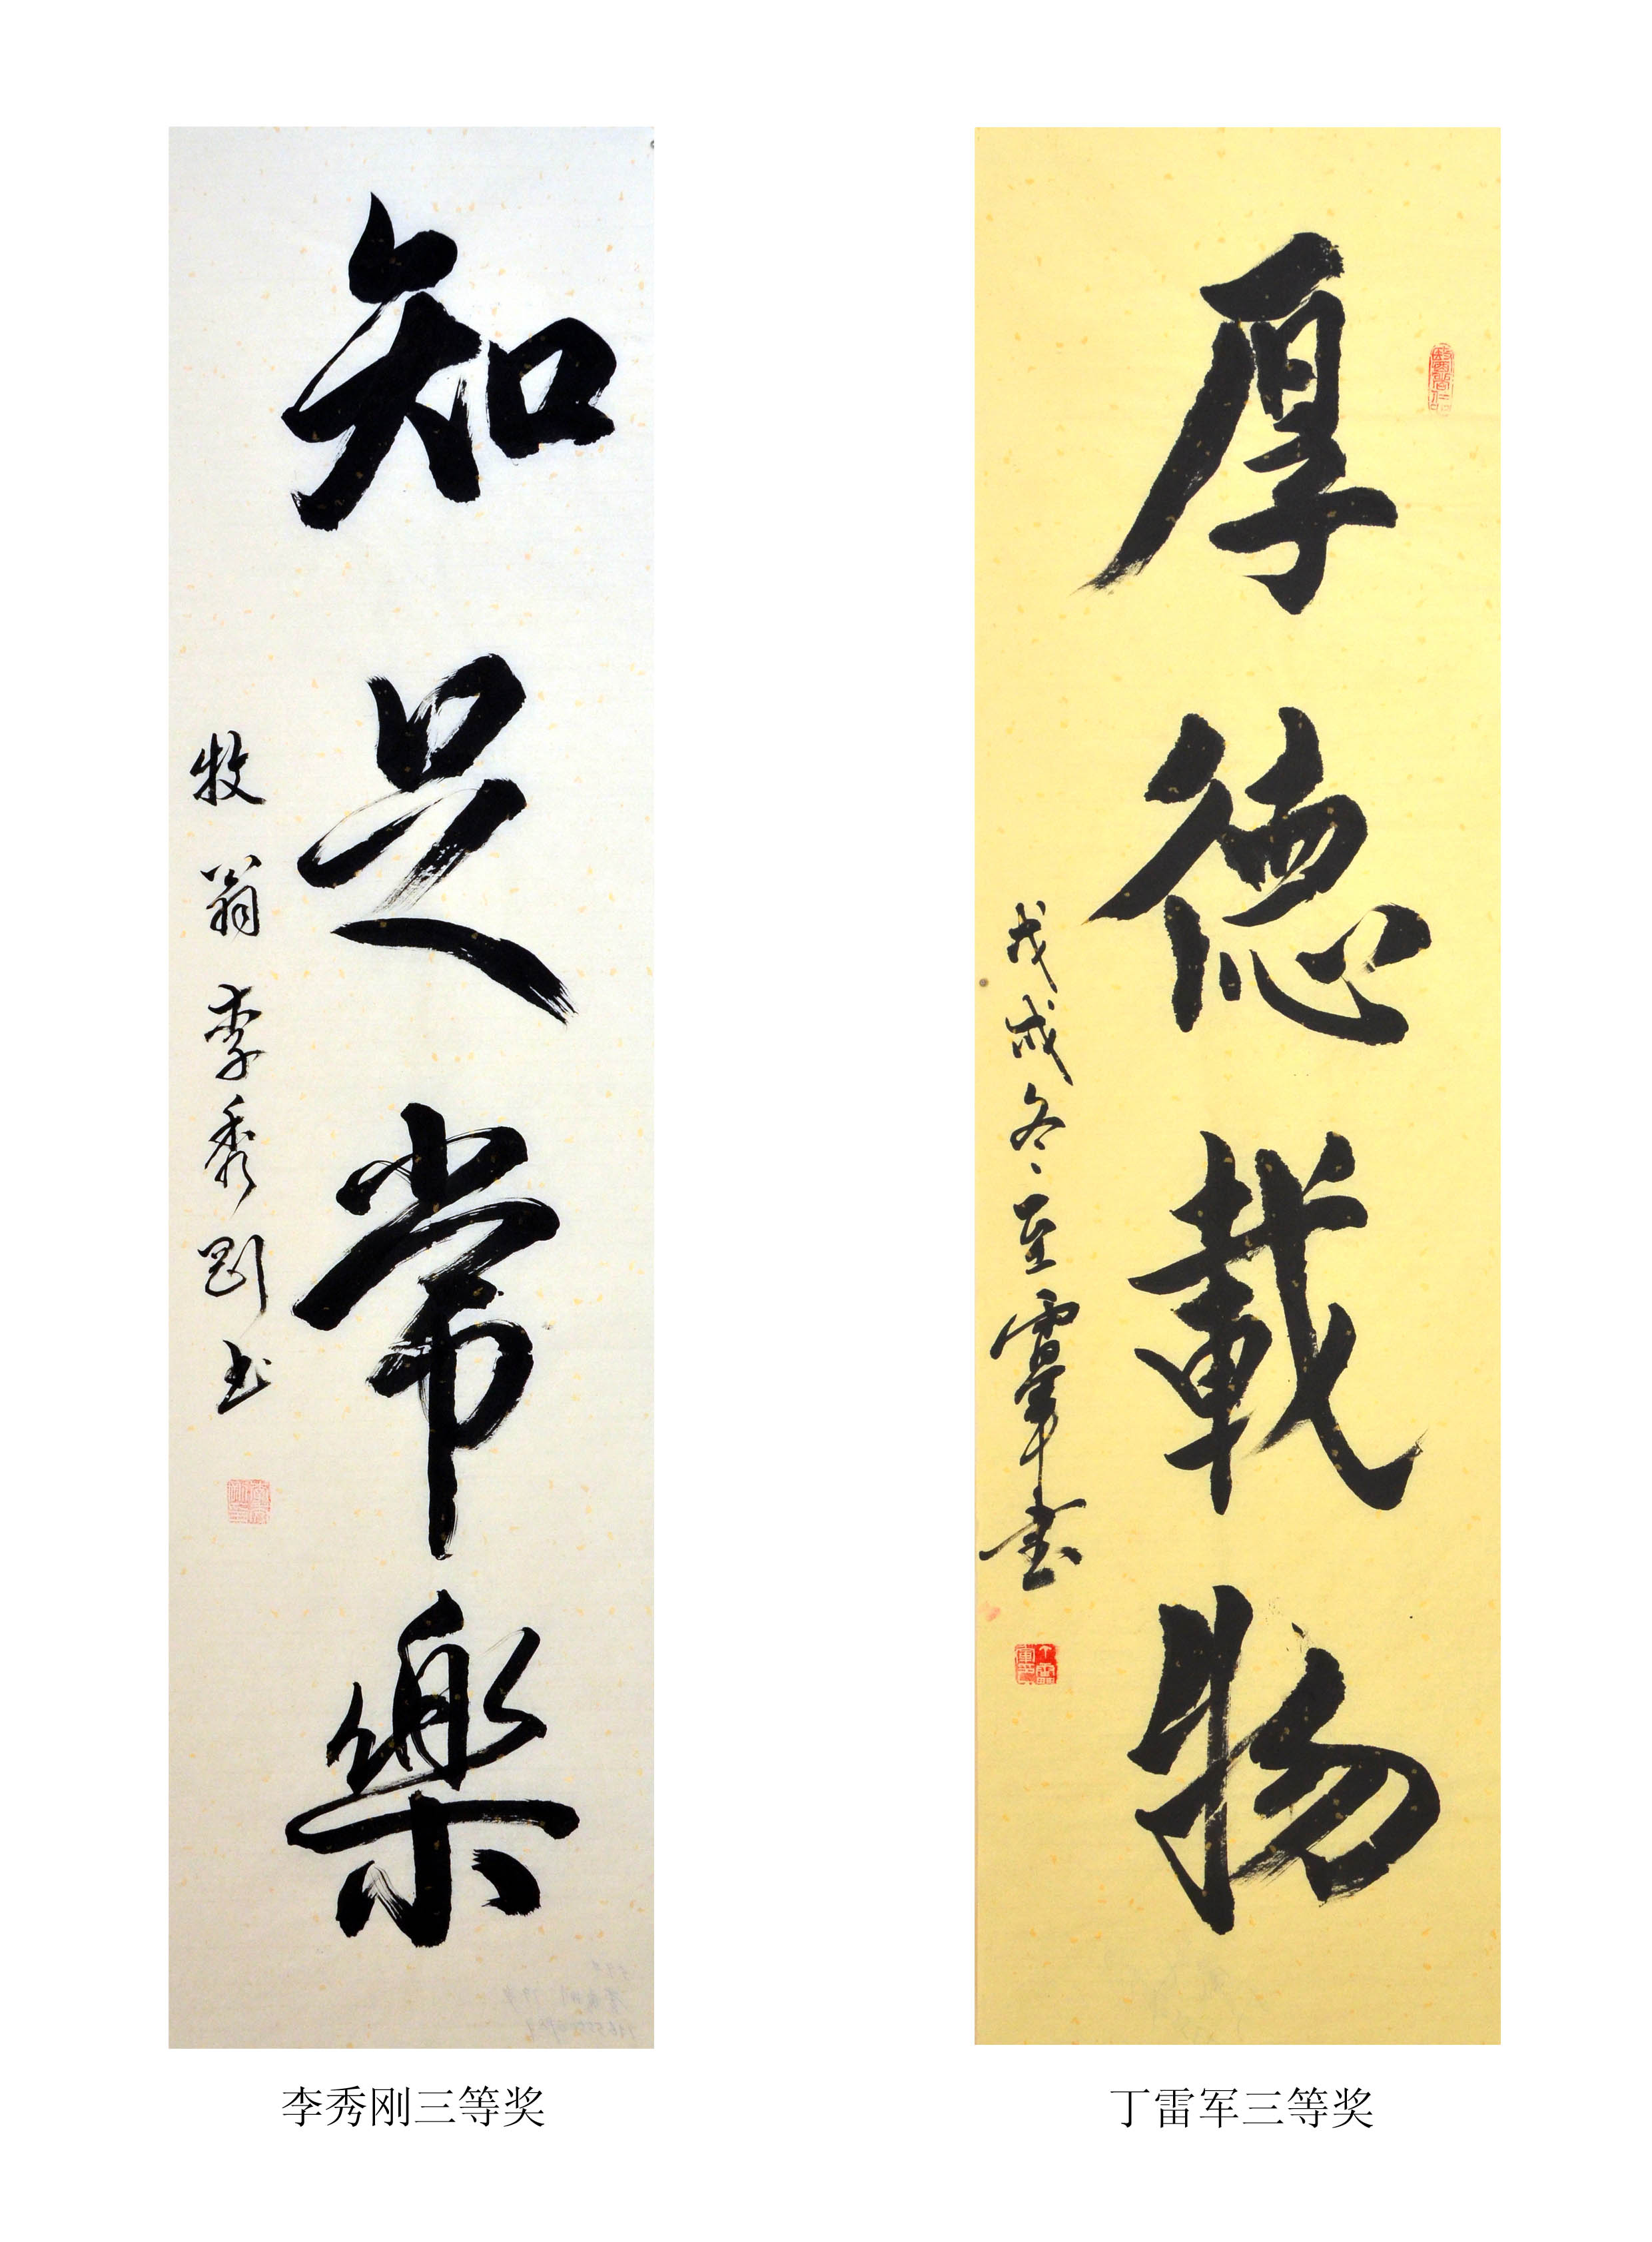 知足常樂
牧翁李秀剛书
厚德載物
戊戌冬至雷军书
丁雷軍印
李秀刚三等奖
丁雷军三等奖